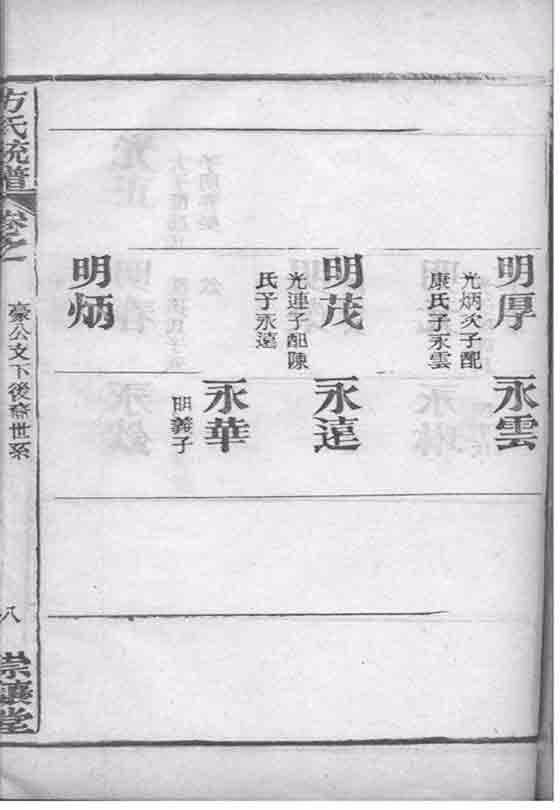 明厚
光炳次子配
康氏子永雲
永雲
明茂
光連子配陳
氏子永遠
永遠
永華
明義子
明炳
方氏統譜
卷之
豪公文下後裔世系
八
崇讓堂